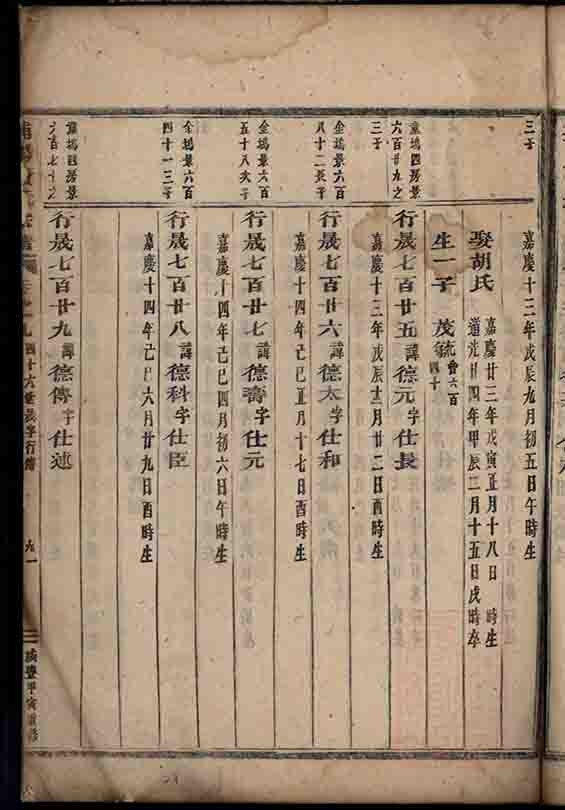 三子
嘉慶十三年戊辰九月初五日午時生
娶胡氏
嘉慶廿三年戊寅正月十八日 時生
道光廿四年甲辰二月十五日戌時卒
生一子 茂毓
會六百四十
童塢四房景六百廿九之三子
行晟七百廿五諱德元字仕長
嘉慶十三年戊辰十二月廿二日酉時生
金塢景六百八十二長子
行晟七百廿六諱德太字仕和
嘉慶十四年己巳正月十七日酉時生
金塢景六百五十八次子
行晟七百廿七諱德濤字仕元
嘉慶十四年己巳四月初六日午時生
金塢景六百四十一三子
行晟七百廿八諱德科字仕臣
嘉慶十四年己巳六月廿九日酉時生
童塢四房景六百七十之
行晟七百廿九諱德傳字仕述
四十六世晟字行傳
九一
咸豐甲寅重修